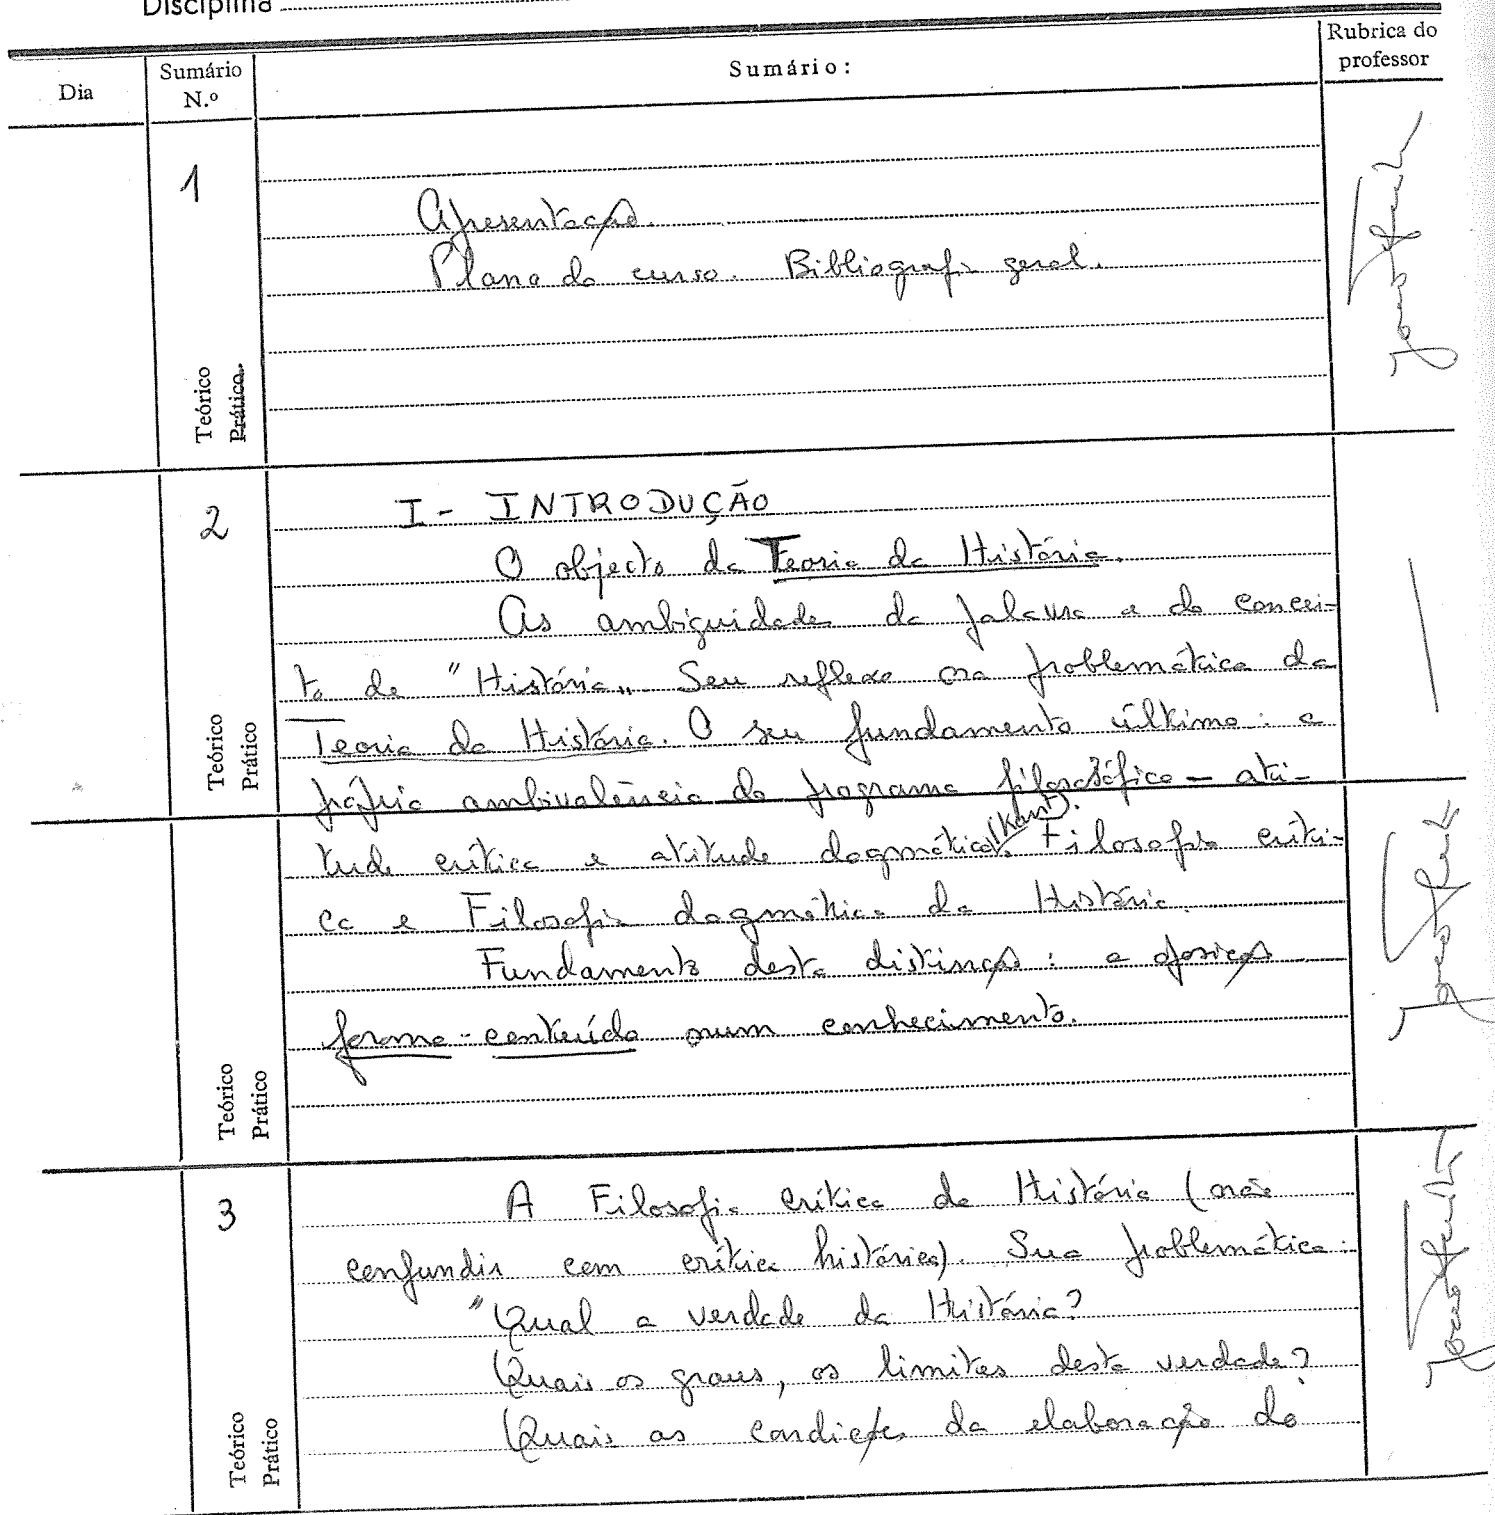 Disciplina
Dia
Sumário N.º
Sumário:
Rubrica do professor
1
Apresentação.
Plano do curso. Bibliografia geral.
Teórico
Prático.
2
I - INTRODUÇÃO
O objecto da Teoria da História.
As ambiguidades da palavra e do concei-
to de "História". Seu reflexo na problemática da
Teoria da História. O seu fundamento último: a
própria ambivalência do programa filosófico - ati-
tude crítica e atitude dogmática (Kant). Filosofia críti-
ca e Filosofia dogmática da História.
Teórico
Prático
Fundamento desta distinção: a oposição
forma-conteúdo num conhecimento.
Teórico
Prático
3
A Filosofia crítica da História (não
confundir com crítica histórica). Sua problemática:
"Qual a verdade da História?
Quais os graus, os limites desta verdade?
Quais as condições da elaboração do
Teórico
Prático